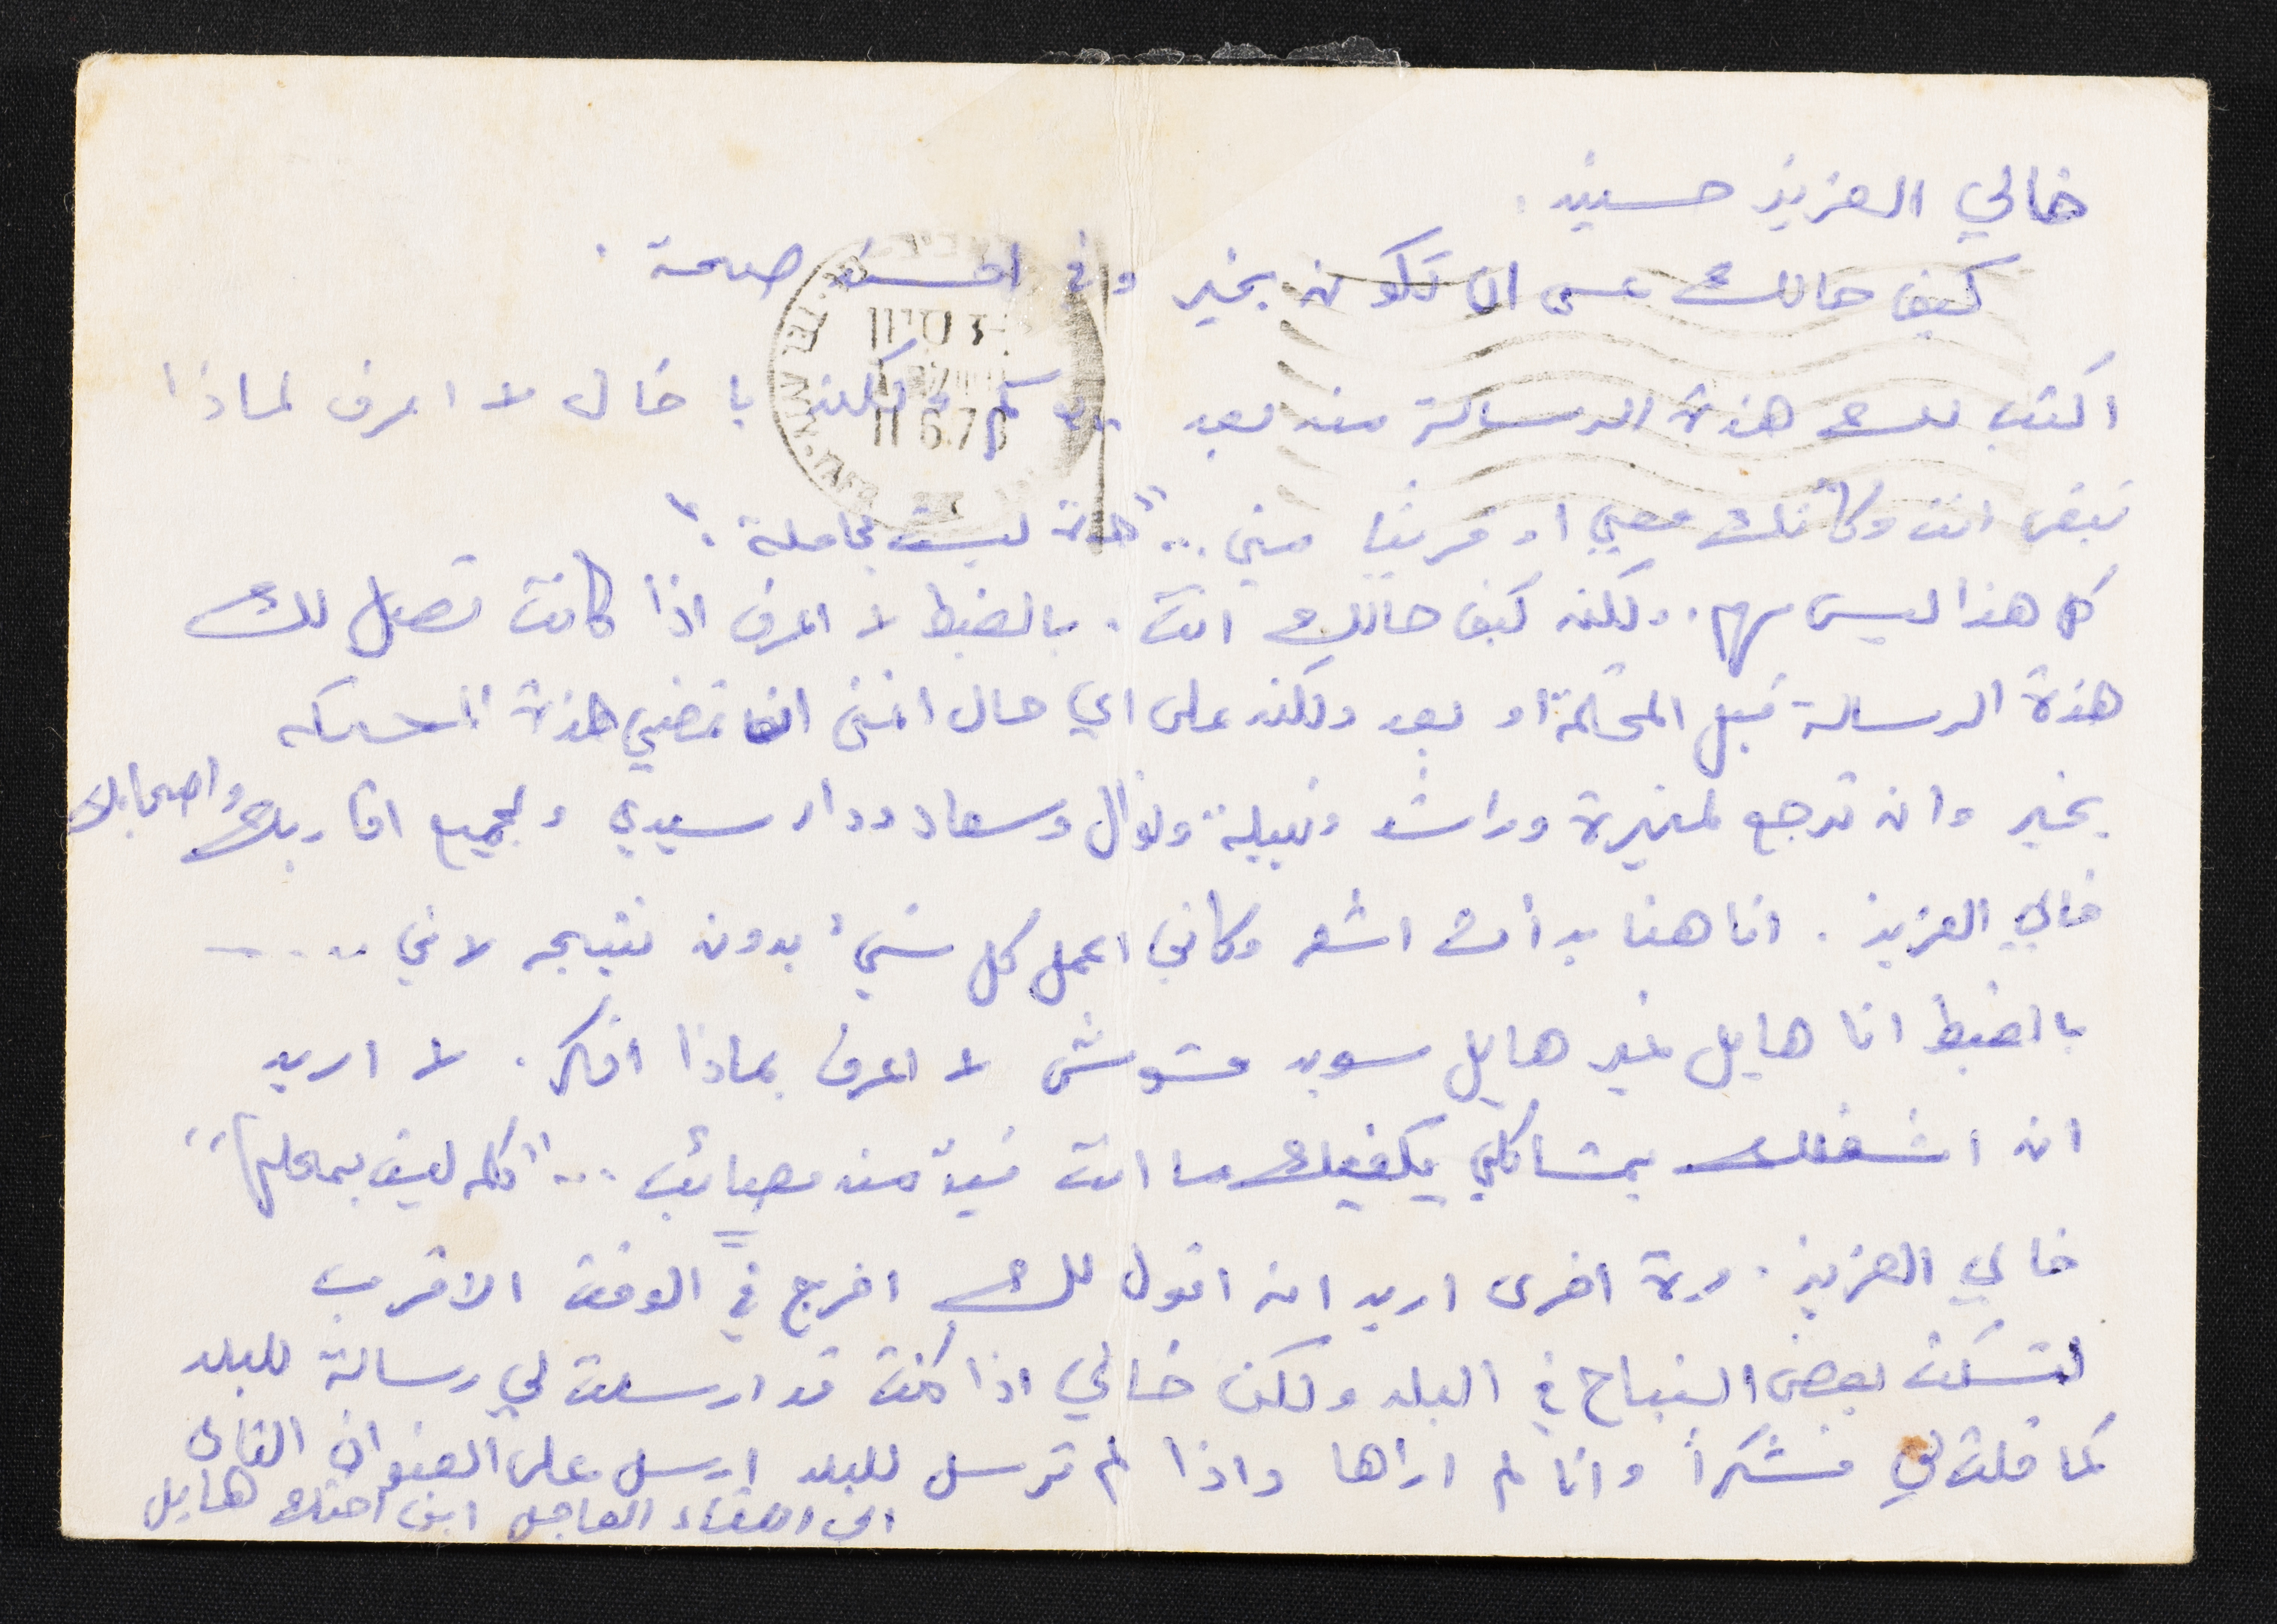 خالي العزيز حسين.
كيف حالك عسى ان تكون بخير وفي احسن صحة.
اكتب لك هذة الرسالة من بعد ... كم ولكن يا خال لا اعرف لماذا
تبقى انت وكأنك معي او قريبا مني... "هذة ليست مجاملة".
كل هذا ليس مهم. ولكن كيف حالك انت. بالضبط لا اعرف اذا كانت تصل لك
هذة الرسالة قبل المحكمة او بعد ولكن على اي حال اتمنى ان تمضي هذة
بخير وان ترجع لمنيرة وراشد ونبيلة ونوال وسعاد ودار سيدي ولجميع اقاربك واصحابك
خالي العزيز. انا هنا بدأت اشعر وكاني اعمل كل شيء بدون نتيجه لاني .....
بالضبط انا هايل غير هايل سويد مشوش لا اعرف بماذا افكر. لا اريد
ان اشغلك بمشاكلي يكفيك ما انت فية من مصائب ... "كله ليس بمحلها"
خالي العزيز. مرة اخرى اريد ان اقول لك اخرج في الوقت الاقرب
لتسكت بعض النباح في البلد ولكن خالي اذا كنت قد ارسلت لي رسالة للبلد
كما قلت لي فشكراً وانا لم اراها واذا لم ترسل للبلد ارسل على العنوان التالي
الى اللقاء العاجل ابن اختك هايل
TEL AVIV-YAFO
11.6.7